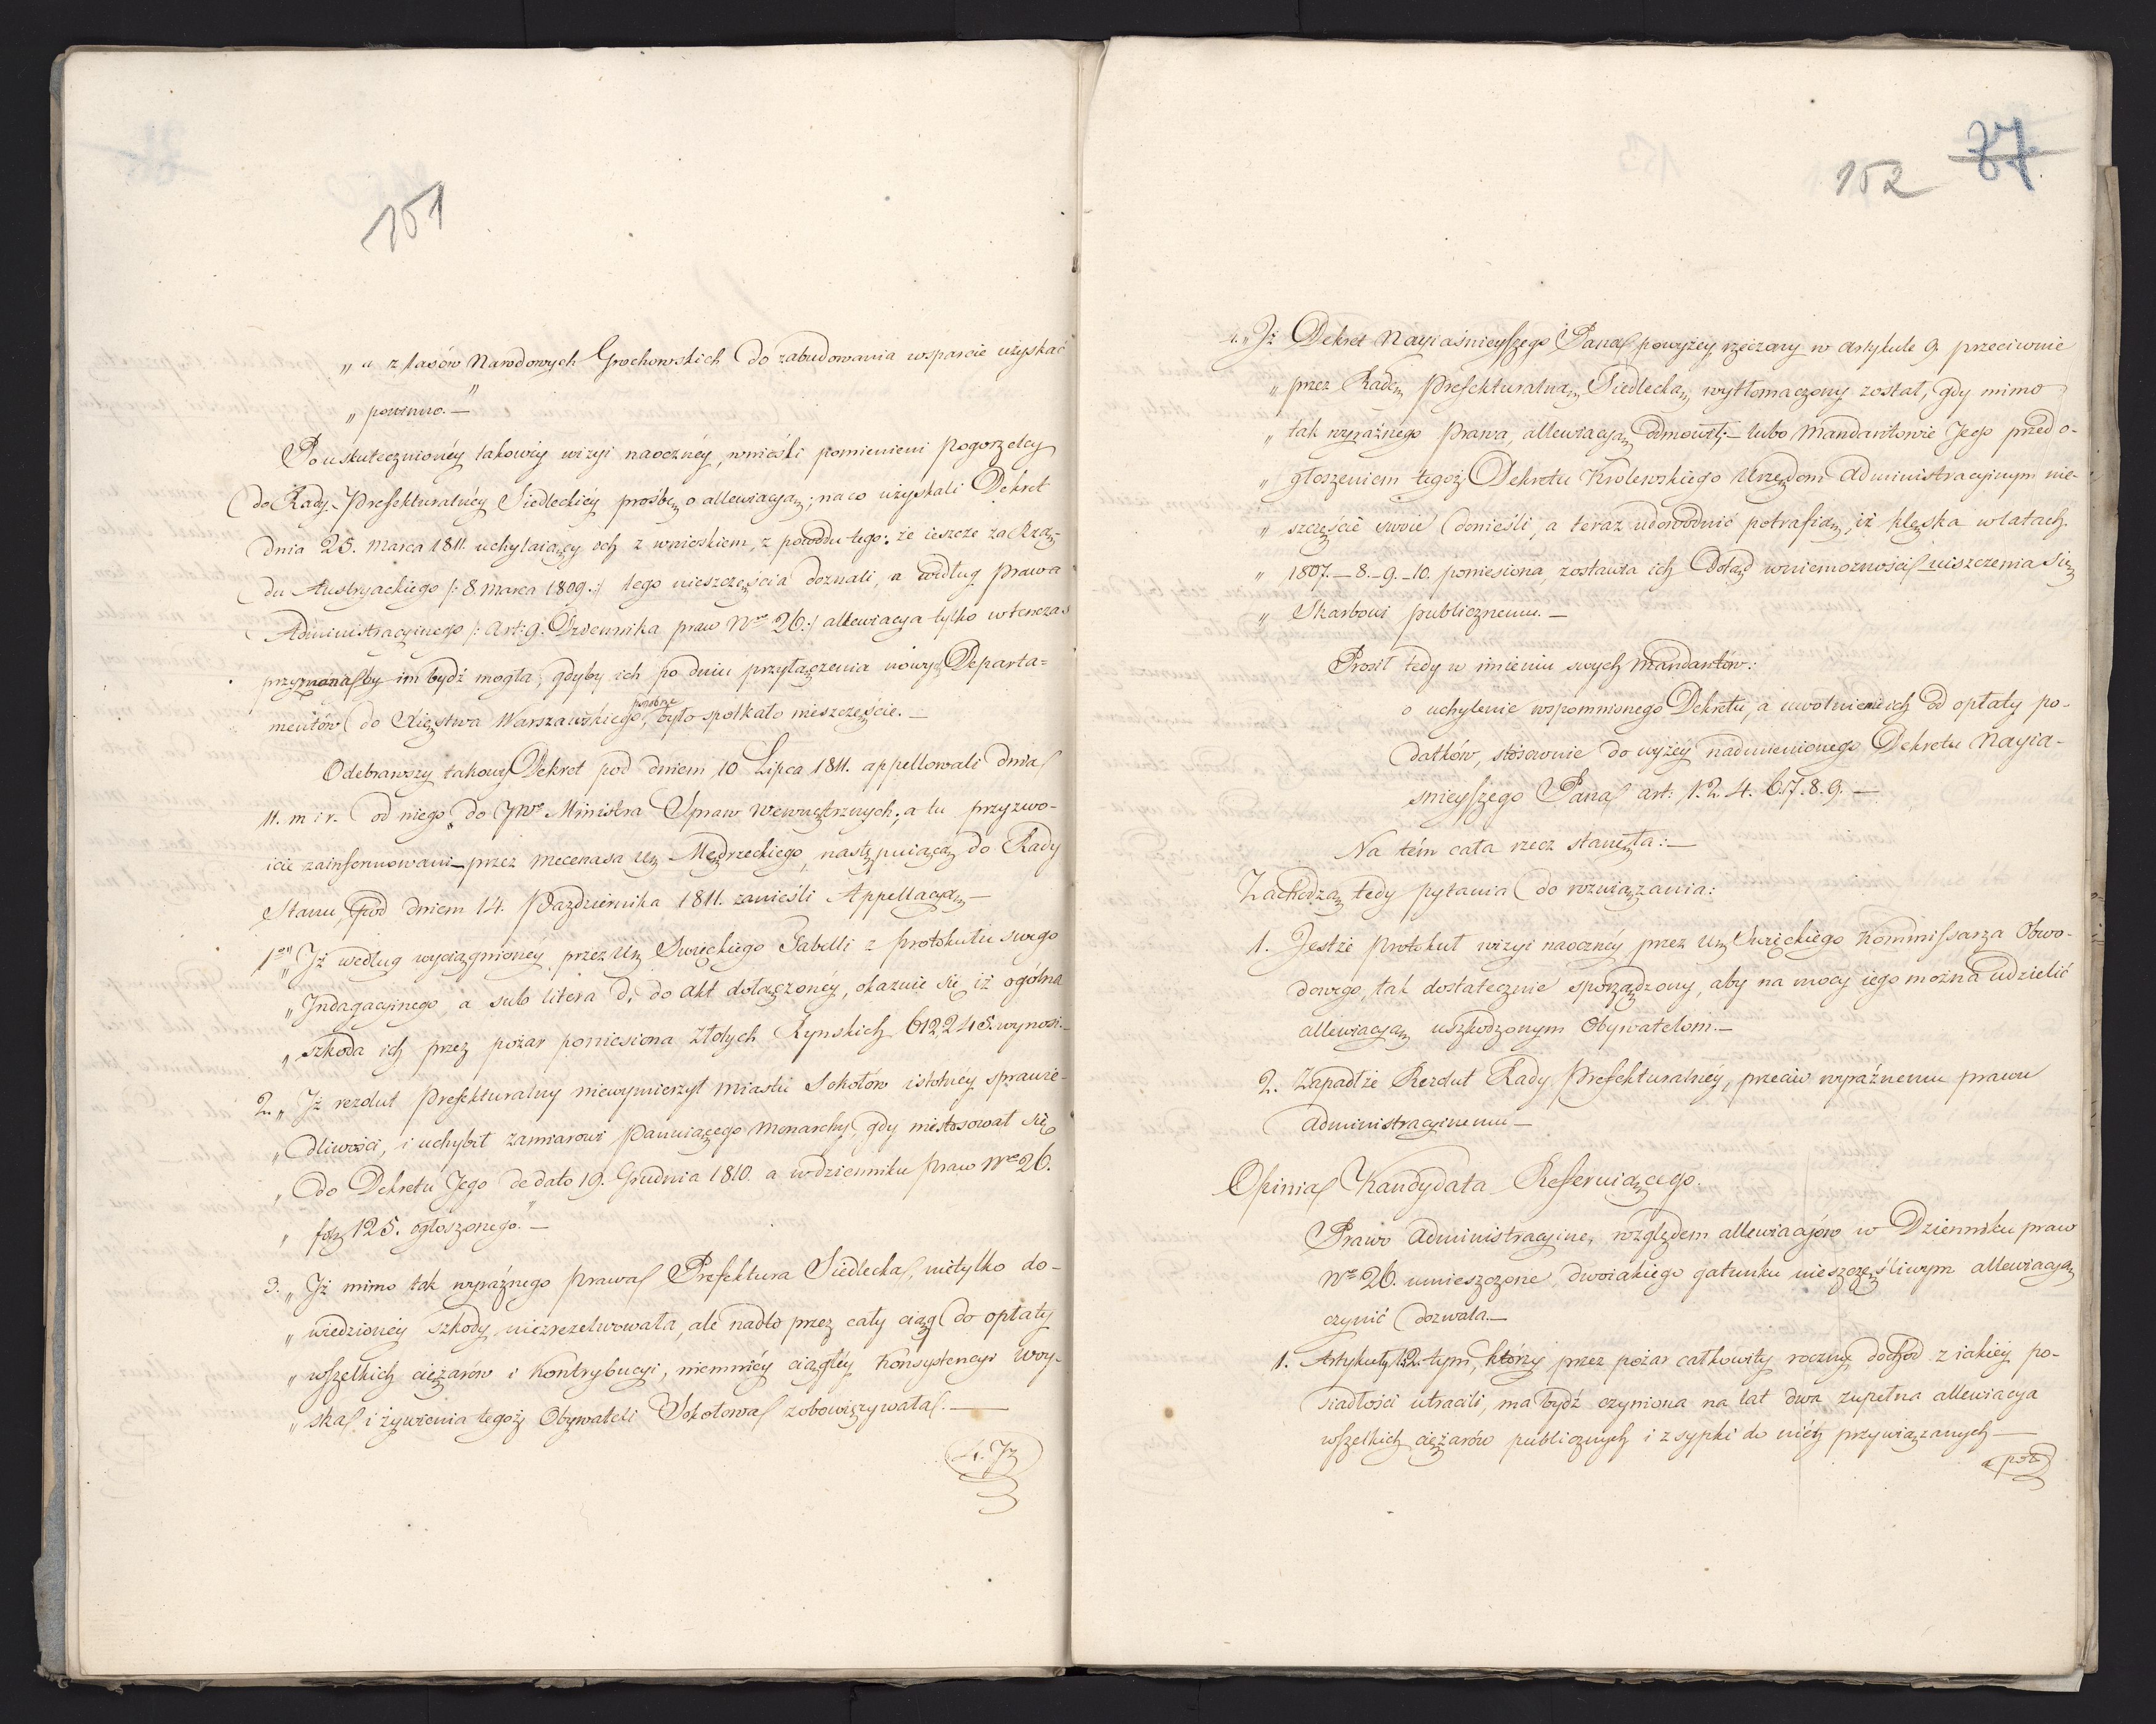 151
„ a z lasów Narodowych Grochowskich do zabudowania wsparcie użyskać
„ powinno. —
Po uskutecznionéy takowéy wizyi naocznéy, wnieśli pomienieni pogorzelcy
do Rady Prefekturalnéy Siedleckiéy prośbę o allewiacyą; na co użyskali Dekret
dnia 25. Marca 1811 uchylaiący ich z wnioskiem, z powodu tego: że ieszcze za Rzą-
du Austryackiego /: 8. Marca 1809. :/ tego nieszczęścia doznali, a według prawa
Administracyinego /: Art: 9. Dziennika praw Nro 26. :/ allewiacya tylko wtenczas
przyznana by im bydź mogła, gdyby ich po dniu przyłączenia nowych Departa=
mentów do Xięstwa Warszawskiego, podobne było spotkało nieszczęście. —
Odebrawszy takowy Dekret pod dniem 10 Lipca 1811. appellowali dnia
11. m i r. od niego do JWo Ministra Spraw Wewnętrznych; a tu przyzwo-
icie zainformowani przez Mecenasa Ur. Mędrzeckiego, następuiącą do Rady
Stanu, pod dniem 14. Października 1811. zanieśli Appellacyą —
1mo „ Iż według wyciągnionéy przez Ur. Swięckiego Tabelli z protokułu swego
„ Indagacyinego, a sub litera D. do akt dołączonéy, okazuie się iż ogólna
„ szkoda ich przez pożar poniesiona Złotych Rynskich 612245. wynosi. —
2. „ Iż rezolut Prefekturalny niewymierzył miastu Sokołów istotnéy sprawie-
„ dliwości, i uchybił zamiarowi Panuiącego Monarchy, gdy niestosował się
„ do Dekretu Jego de dato 19. Grudnia 1810. a w dzienniku praw Nro 26.
„ fol. 125. ogłoszonego. —
3. „ Iż mimo tak wyraźnego prawa Prefektura Siedlecka, nietylko do-
„ wiedzionéy szkody niezrezolwowała, ale nadto przez cały ciąg do opłaty
„ wszelkich ciężarów i kontrybucyi, niemniéy ciągłéy Konsystencyi Woy-
„ ska i żywienia tegoż Obywateli Sokołowa zobowiązywała. —
4. Iż
152 37
4. „ Iż Dekret Nayiaśnieyszego Pana powyżéy rzeczony w Artykule 9. przeciwnie
„ przez Radę Prefekturalną Siedlecką wytłomaczony został, gdy mimo
„ tak wyraźnego prawa, allewiacyą odmowił; — lubo Mandantowie Jego przed o-
„ głoszeniem tegoż Dekretu Krolewskiego Urzędom Administracyinym nie-
„ szczęście swoie donieśli, a teraz udowodnić potrafią, iż klęska w latach
„ 1807. — 8. — 9. — 10. poniesiona, zostawia ich dotąd w niemożności uiszczenia się
„ Skarbowi publicznemu. —
Prosił tedy w imieniu swych Mandantów:
o uchylenie wspomnionego Dekretu, a uwolnienie ich od opłaty po-
datków, stósownie do wyżéy nadmienionego Dekretu Nayia-
śnieyszego Pana art: 1. 2. 4. 6. 7. 8. 9. —
Na tém cała rzecz stanęła: —
Zachodzą tedy pytania do rozwiązania:
1. Jestże protokuł wizyi naocznéy przez Ur. Swięckiego Kommissarza Obwo-
dowego, tak dostatecznie sporządzony, aby na mocy iego można udzielić
allewiacyą uszkodzonym Obywatelom. —
2. Zapadłże Rezolut Rady Prefekturalnéy, przeciw wyraźnemu prawu
Administracyinemu —
Opinia Kandydata Referuiącego.
Prawo Administracyine, względem allewiacyów w Dzienniku praw
Nro 26. umieszczone, dwoiakiego gatunku nieszczęśliwym allewiacyą
czynić dozwala. —
1. Artykuły 1. 2. tym, którzy przez pożar całkowity roczny dochód z iakiéy po-
siadłości utracili, ma bydź czyniona na lat dwa zupełna allewiacya
wszelkich ciężarów publicznych i z sypki do niéy przywiązanych —